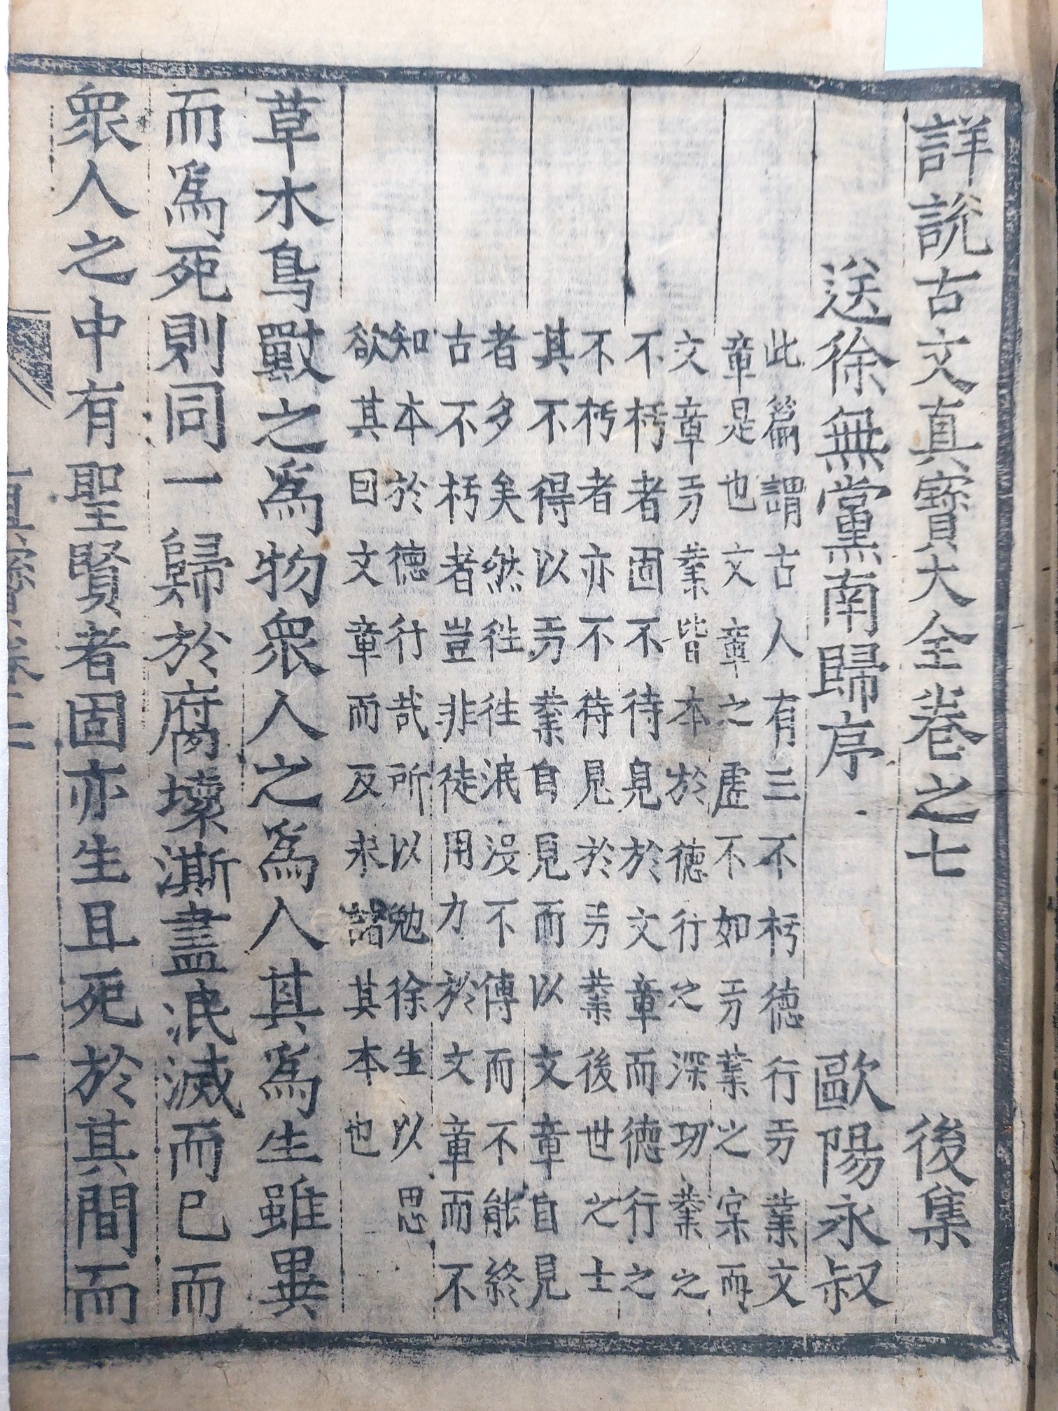 詳說古文真寶大全卷之七 後集
送徐無黨南歸序 歐陽永叔
此篇謂古人有三不朽德行功業文
章是也文章之虛不如功業之宲而
文章功業皆本於德行之深功業之
不朽者固不待見於文章而德行之
不朽者亦不待見於功業後世之士
其不得以功業自見而以文章自見
者多矣然往往泯沒不傳而不能終
古不朽者豈非徒用力於文章而不
知本於德行哉所以勉徐生以思
欲其因文章而反求諸其本也
草木鳥獸之爲物衆人之爲人其爲生雖異
而爲死則同一歸於腐壞澌盡泯滅而已而
衆人之中有聖賢者固亦生且死於其間而